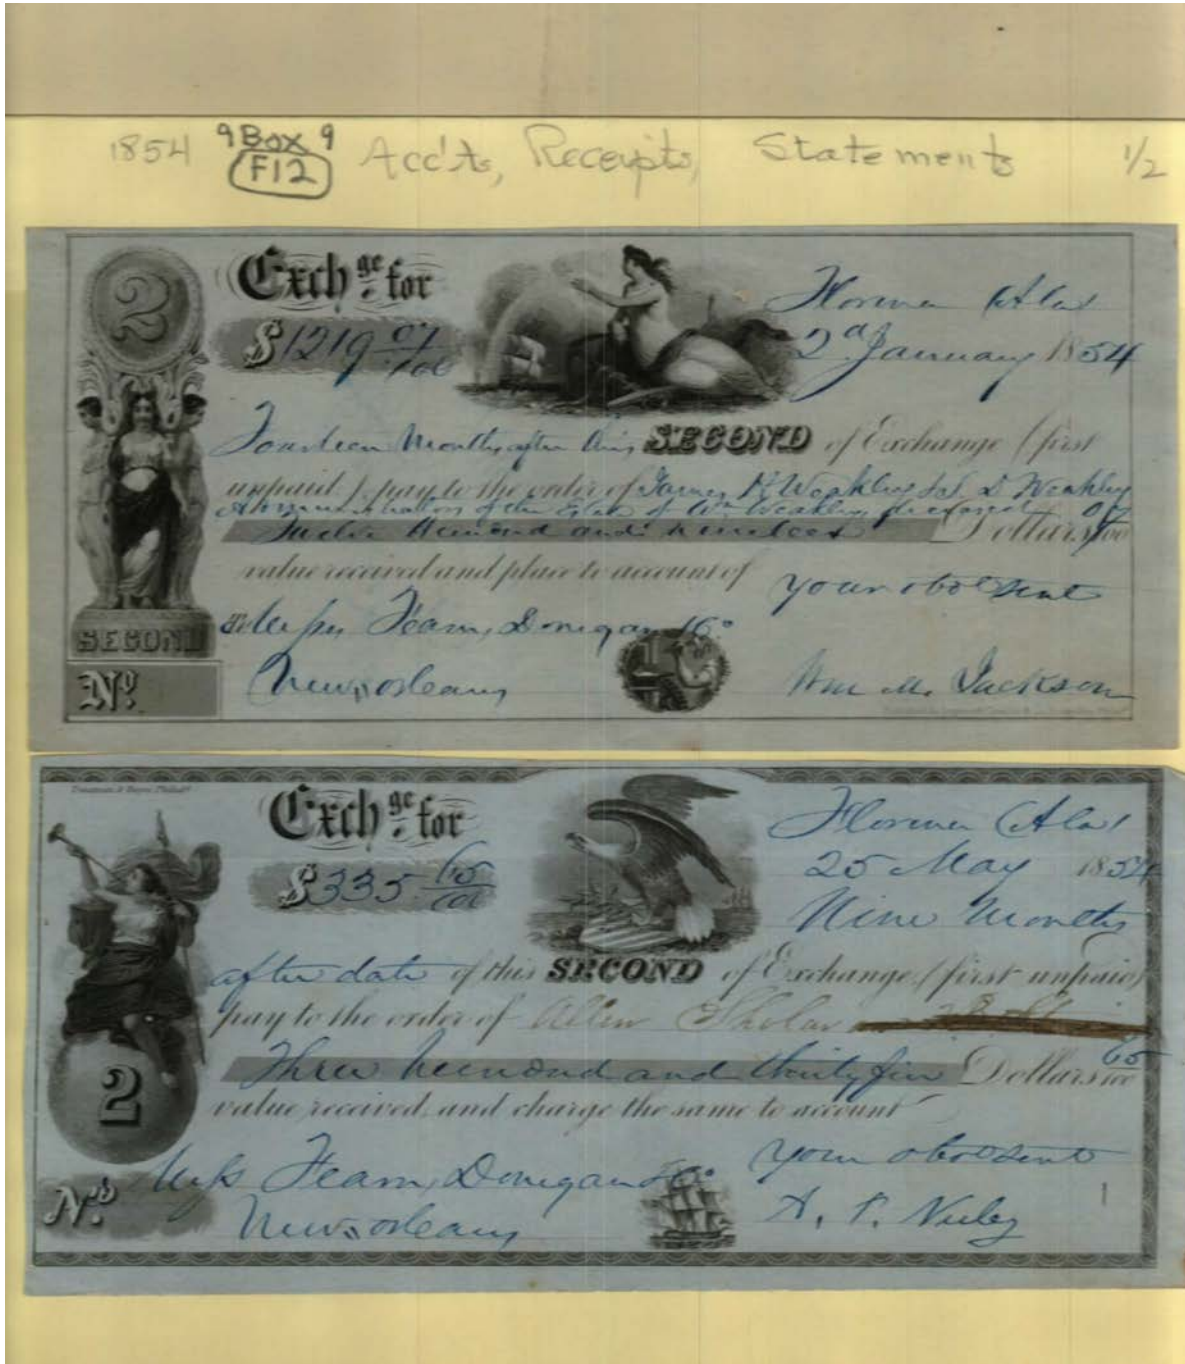 1854 9 Box 9 Acc'ts, Receipts, Statements 1/2
F12
2
Exchge for
$1219 07/100
Florence Ala
2d January 1854
Fourteen Months after this SECOND of Exchange (first
unpaid) pay to the order of James H Weakley & S. D Weakley
Administrators of the Estate of Wm Weakley deceased
Twelve Hundred and nineteen 07/100 Dollars
value received and place to account of
your obdt Servt
To Messrs Fearn, Donegan & Co
SECOND
New, Orleans
Wm M. Jackson
No.
Exchge for
$335 65/100
Florence Ala
25 May 1854
Nine Months
after date of this SECOND of Exchange (first unpaid)
pay to the order of Allen Sholar
Three hundred and thirty five 65/100 Dollars
2
value received, and charge the same to account
your obdt Servt
Messrs Fearn, Donegan & Co
No.
New, Orleans